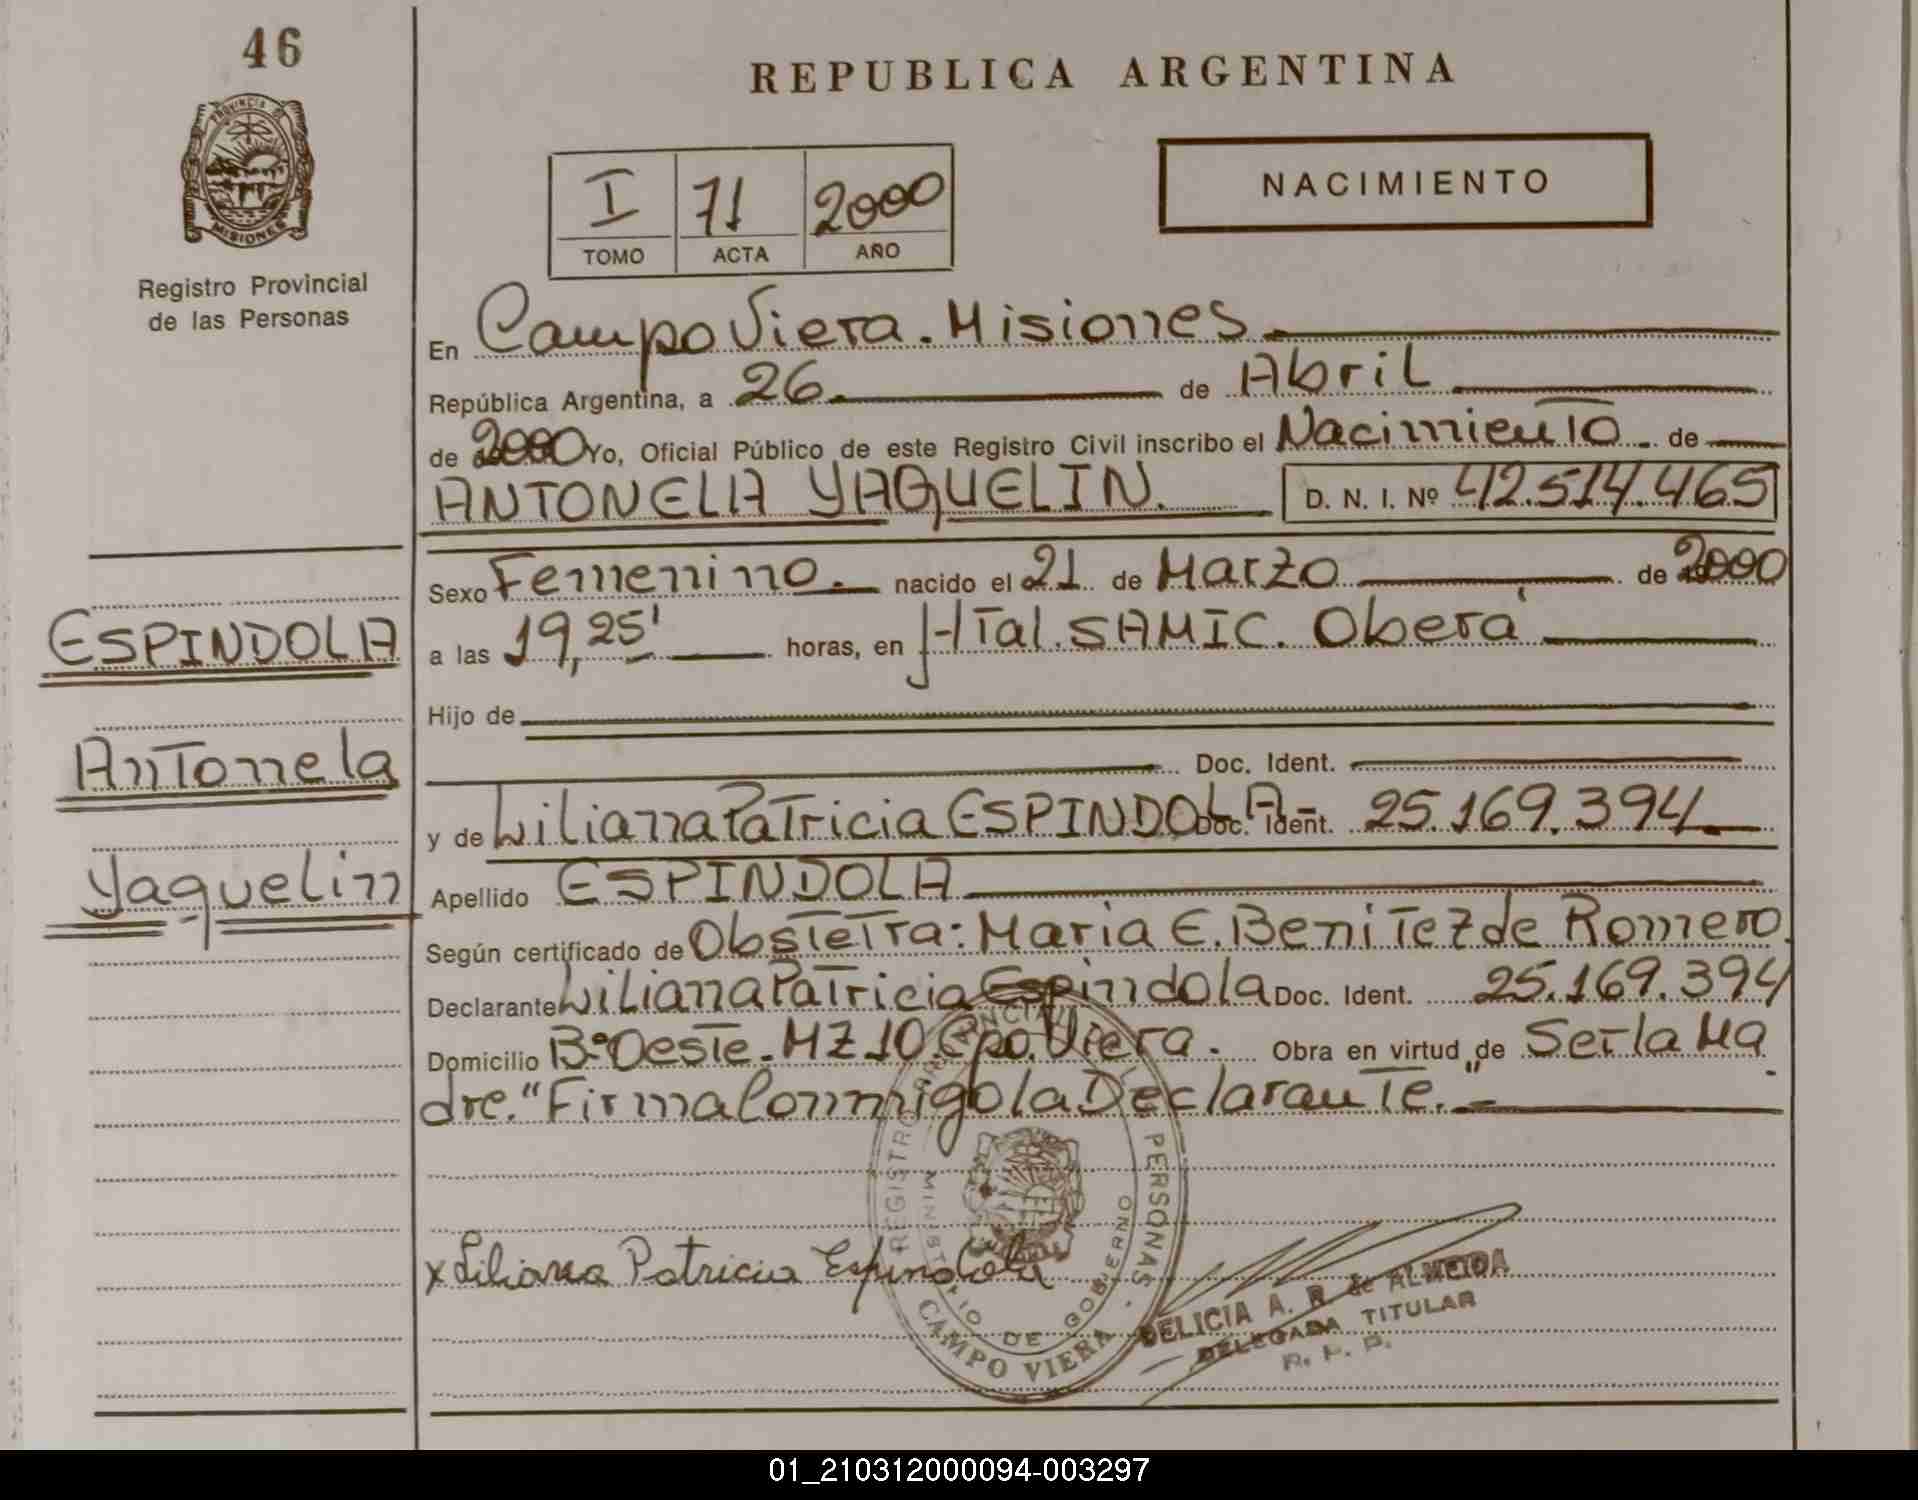 46
PROVINCIA DE
MISIONES
Registro Provincial
de las Personas
ESPINDOLA
Antonela
Yaquelin
REPUBLICA ARGENTINA
I 71 2000
TOMO ACTA AÑO
NACIMIENTO
En Campo Viera. Misiones
República Argentina, a 26. de Abril
de 2000 Yo, Oficial Público de este Registro Civil inscribo el Nacimiento. de
ANTONELA YAQUELIN. D. N. I. Nº 42.514.465
Sexo Femenino. nacido el 21 de Marzo de 2000
a las 19,25' horas, en Htal. SAMIC. Oberá
Hijo de
Doc. Ident.
y de Liliana Patricia ESPINDOLA- Doc. Ident. 25.169.394
Apellido ESPINDOLA
Según certificado de Obstetra: Maria E. Benitez de Romero.
Declarante Liliana Patricia Espindola Doc. Ident. 25.169.394
Domicilio Bº Oeste. MZ 10. Cpo. Viera. Obra en virtud de Ser la Ma
dre. "Firma Conmigo la Declarante."
x Liliana Patricia Espindola
REGISTRO PROVINCIAL DE LAS PERSONAS
MINISTERIO DE GOBIERNO
CAMPO VIERA
DELICIA A. R. de ALMEIDA
DELEGADA TITULAR
R. P. P.
01_210312000094-003297